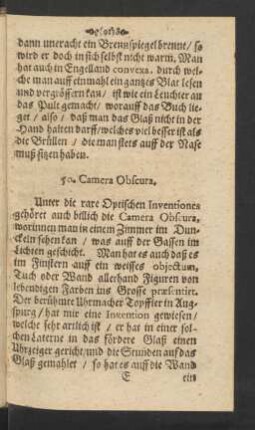 dann uneracht ein Brennspiegel brennt / so
wird er doch in sich selbst nicht warm. Man
hat auch in Engelland convexa. durch wel-
che man auff einmahl ein gantzes Blat lesen
und vergrössern kan / ist wie ein Leuchter an
das Pult gemacht / worauff das Buch lie-
get / also / daß man das Glaß nicht in der
Hand halten darff / welches viel besser ist als
die Brüllen / die man stets auff der Nase
muß sitzen haben.
50. Camera Obscura.
Unter die rare Optischen Inventiones
gehöret auch billich die Camera Obscura,
worinnen man in einem Zimmer im Dun-
ckeln sehen kan / was auff der Gassen im
Lichten geschicht. Man hat es auch daß es
im Finstern auff ein weisses objectum,
Tuch oder Wand allerhand Figuren von
lebendigen Farben ins Grosse præsentirt.
Der berühmte Uhrmacher Topffier in Aug-
spurg / hat mir eine Invention gewiesen /
welche sehr artlich ist / er hat in einer sol-
chen Laterne in das fördere Glaß einen
Uhrzeiger gericht / und die Stunden auf das
Glaß gemahlet / so hat es auff die Wand
E ein